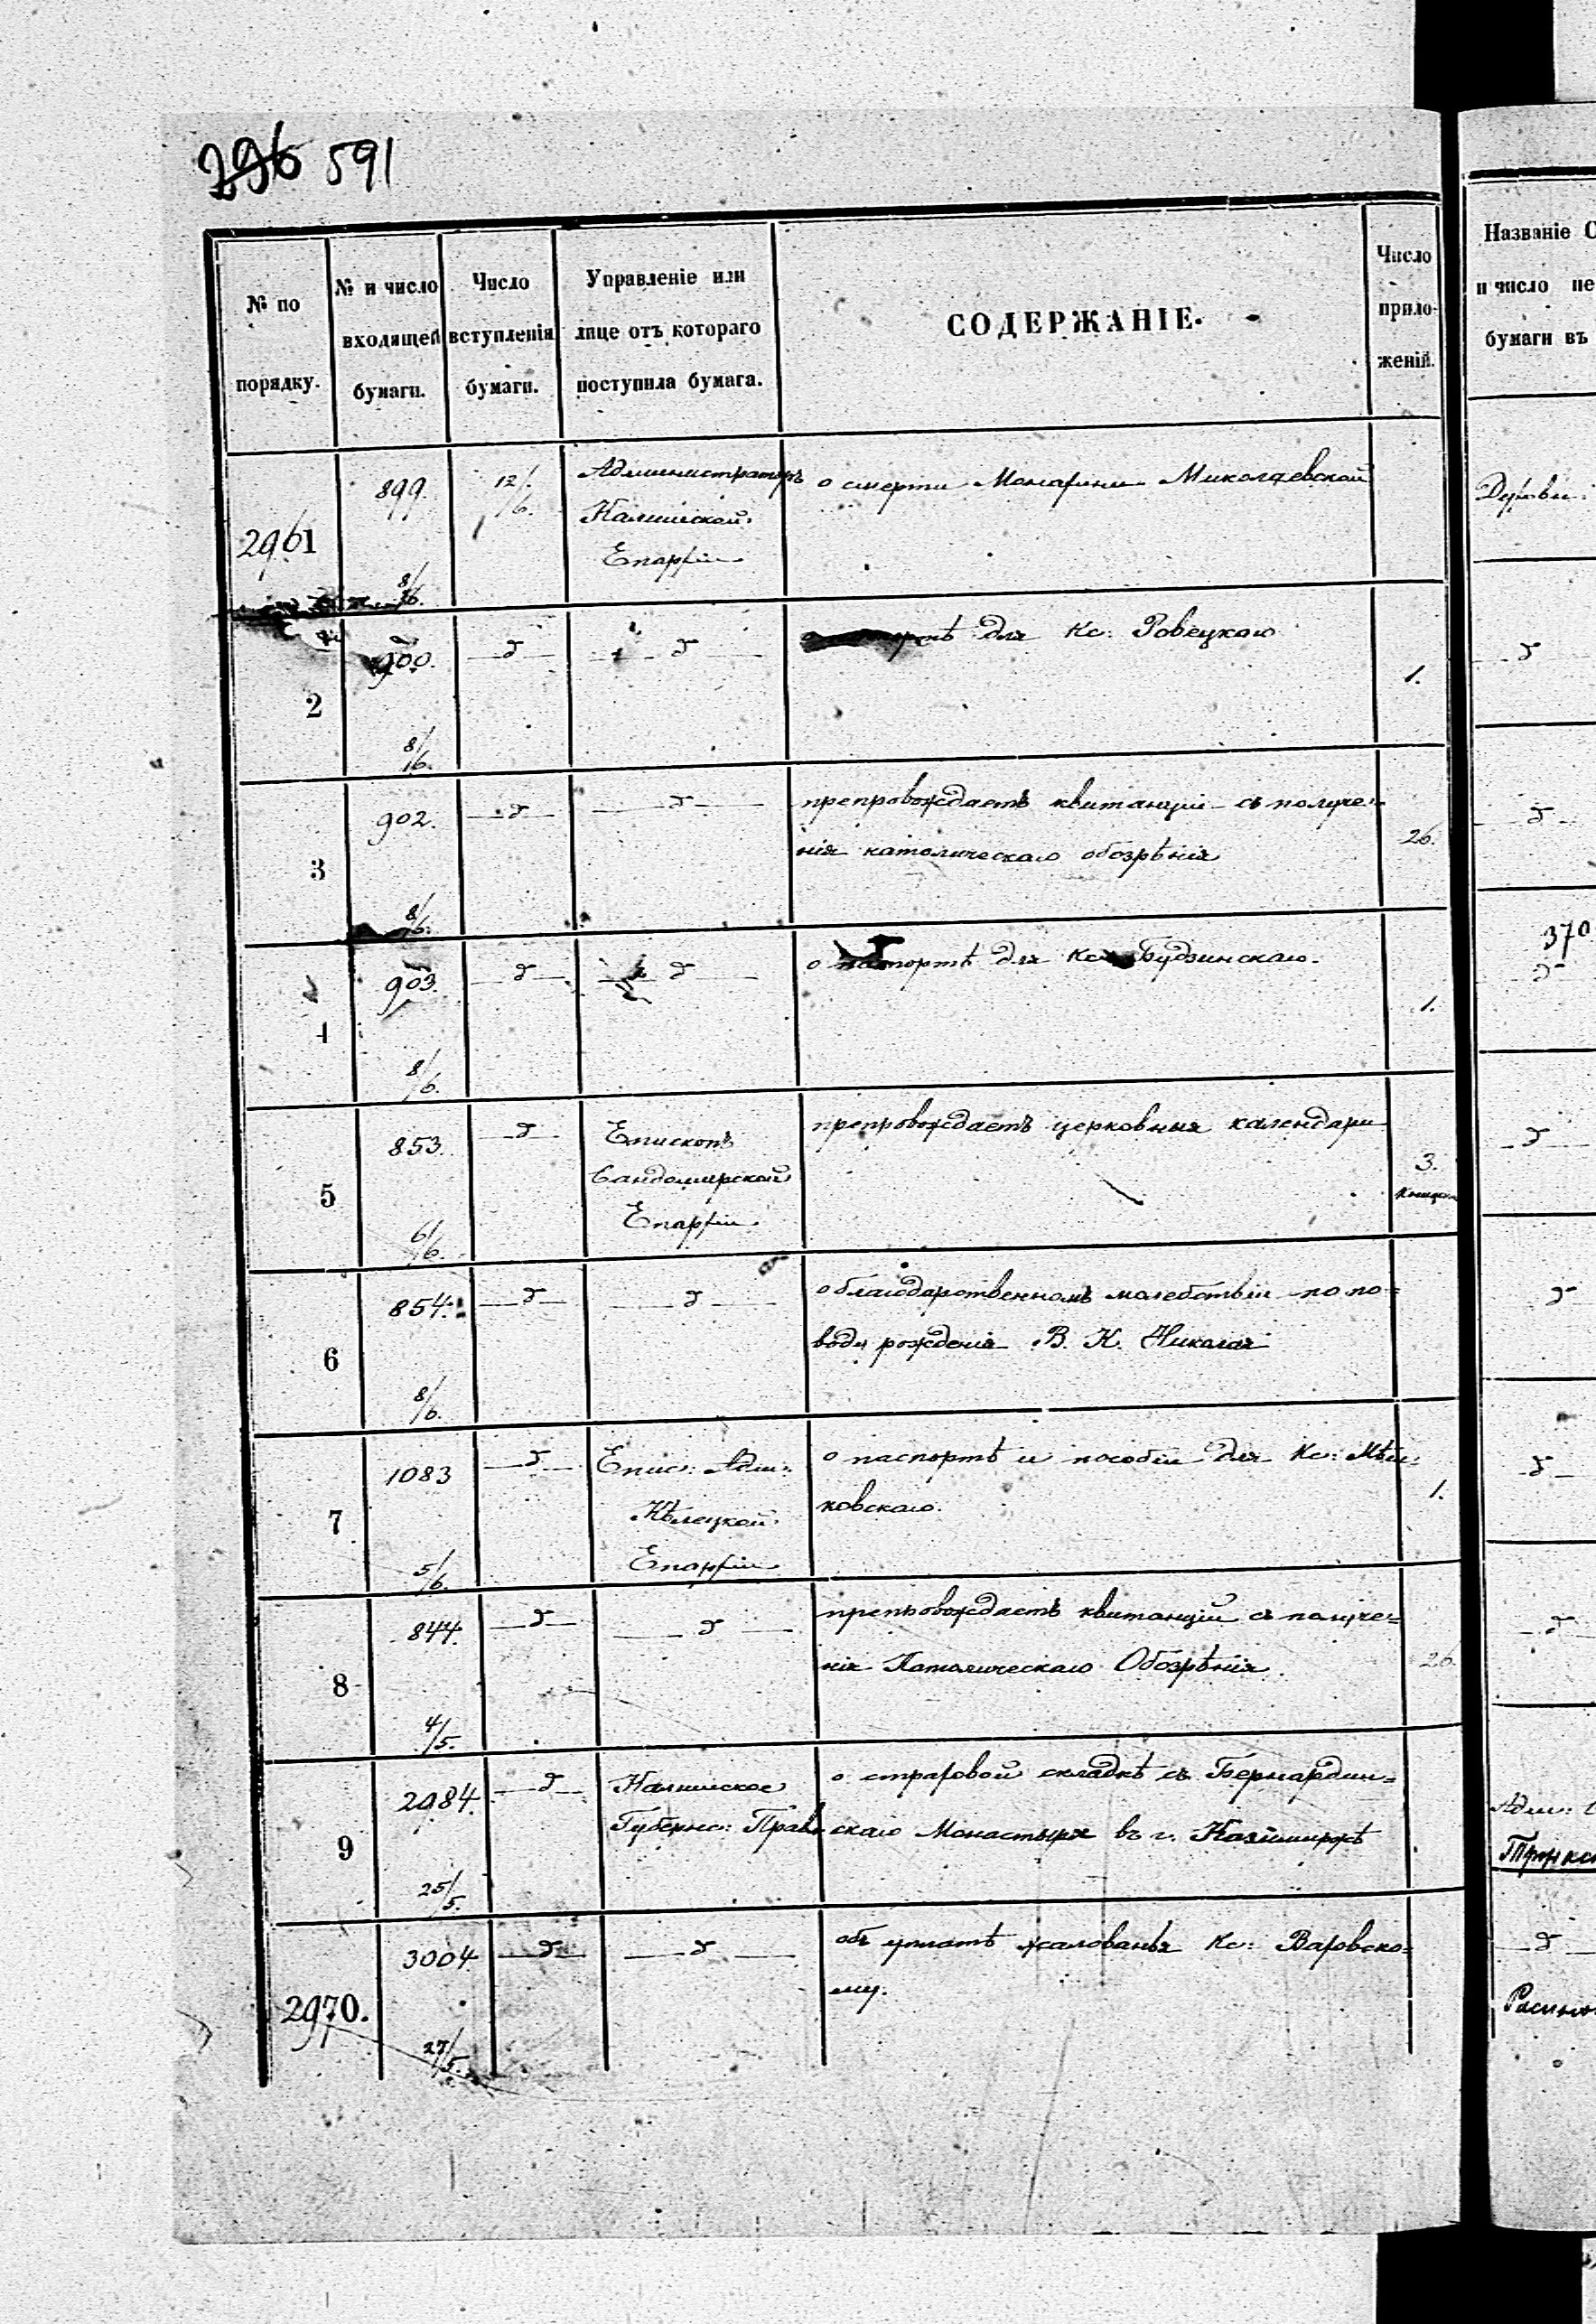 296 591
№ по порядку.
№ и число входящей бумаги.
Число вступленія бумаги.
Управленіе или лице отъ котораго поступила бумага.
СОДЕРЖАНІЕ.
Число приложеній.
Названіе С
и число пе
бумаги въ
2961
899.
8/6.
12/6.
Администраторъ
Калишской
Епархіи
о смерти Монахини Миколаевской
Духовн.
2
900.
8/6.
—д—
—д—
для Кс: Ровецкаго
1.
—д—
3
902.
8/6.
—д—
—д—
препровождаетъ квитанціи съ получе-
нія католическаго обозрѣнія
26.
—д—
4
903.
8/6.
—д—
—д—
о паспортѣ для Кс: Будзинскаго.
1.
370
—д—
5
853.
6/6.
—д—
Епископъ
Сандомирской
Епархіи
препровождаетъ церковныя календари
3.
—д—
6
854.
8/6.
—д—
—д—
о благодарственномъ молебствіи по по-
воду рожденія В. К. Николая
—д—
7
1083
5/6.
—д—
Епис: Адм:
Кѣлецкой
Епархіи
о паспортѣ и пособіи для Кс:
ковскаго.
1.
—д—
8
844.
4/5.
—д—
—д—
препровождаетъ квитанціи съ получе=
нія Католическаго Обозрѣнія.
26.
—д—
9
2984.
25/5.
—д—
Калишское
Губернс: Прав:
о страховой складкѣ съ Бернардин=
скаго Монастыря въ г. Казимиржѣ
Адм:
2970.
3004
27/5.
—д—
—д—
объ уплатѣ жалованья Кс: Варовско=
му.
—д—